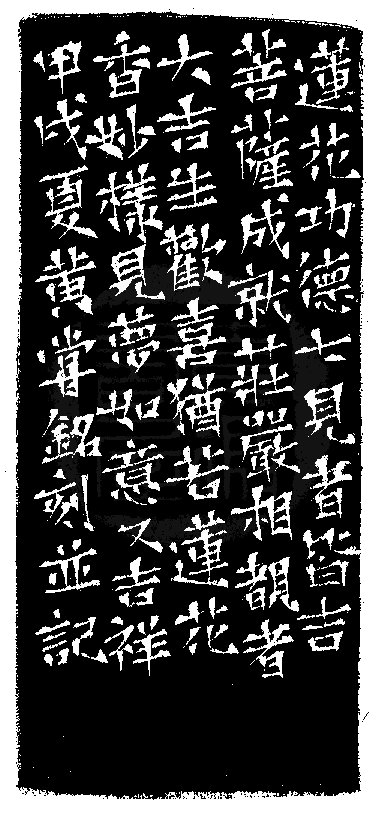 蓮花功德士見者皆吉
菩薩成就莊嚴相覩者
大吉生歡喜猶若蓮花
香妙樣見夢如意又吉祥
甲戌夏黄嘗銘刻並記